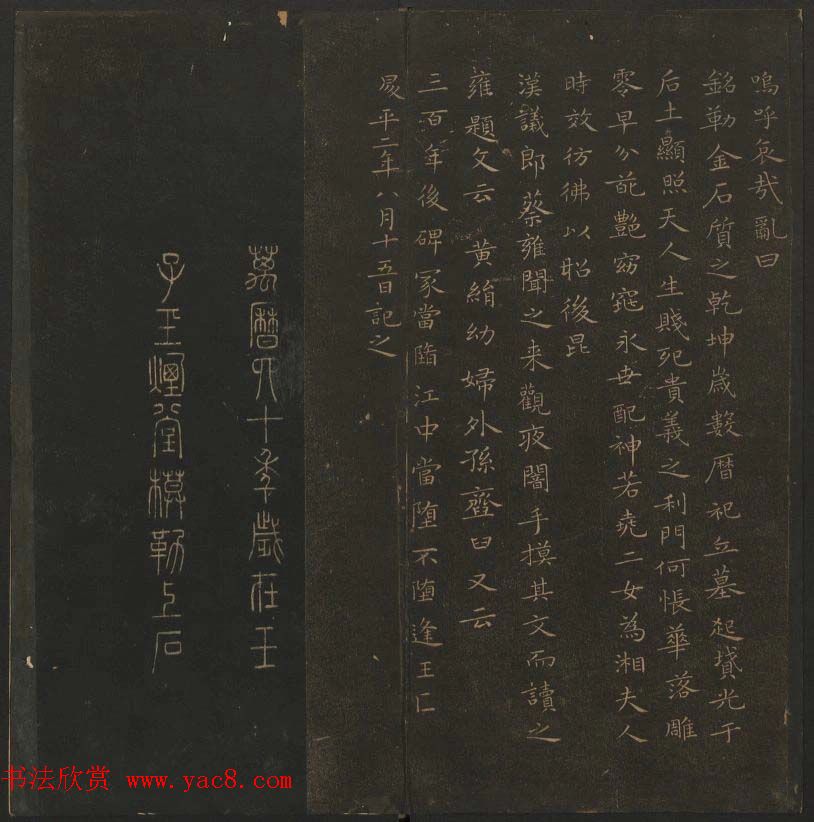 嗚呼哀哉亂曰
銘勒金石質之乾坤歲數曆祀立墓起墳光于
后土顯照天人生賤死貴義之利門何悵華落雕
零早分葩艷窈窕永世配神若堯二女為湘夫人
時效彷彿以昭後昆
漢議郎蔡雍聞之来觀夜闇手摸其文而讀之
雍題文云黃絹幼婦外孫齏臼又云
三百年後碑冢當墮江中當墮不墮逢王叵
昇平二年八月十五日記之
萬曆四十季歲在壬
子玉煙堂模勒上石
书法欣赏 www.yac8.com